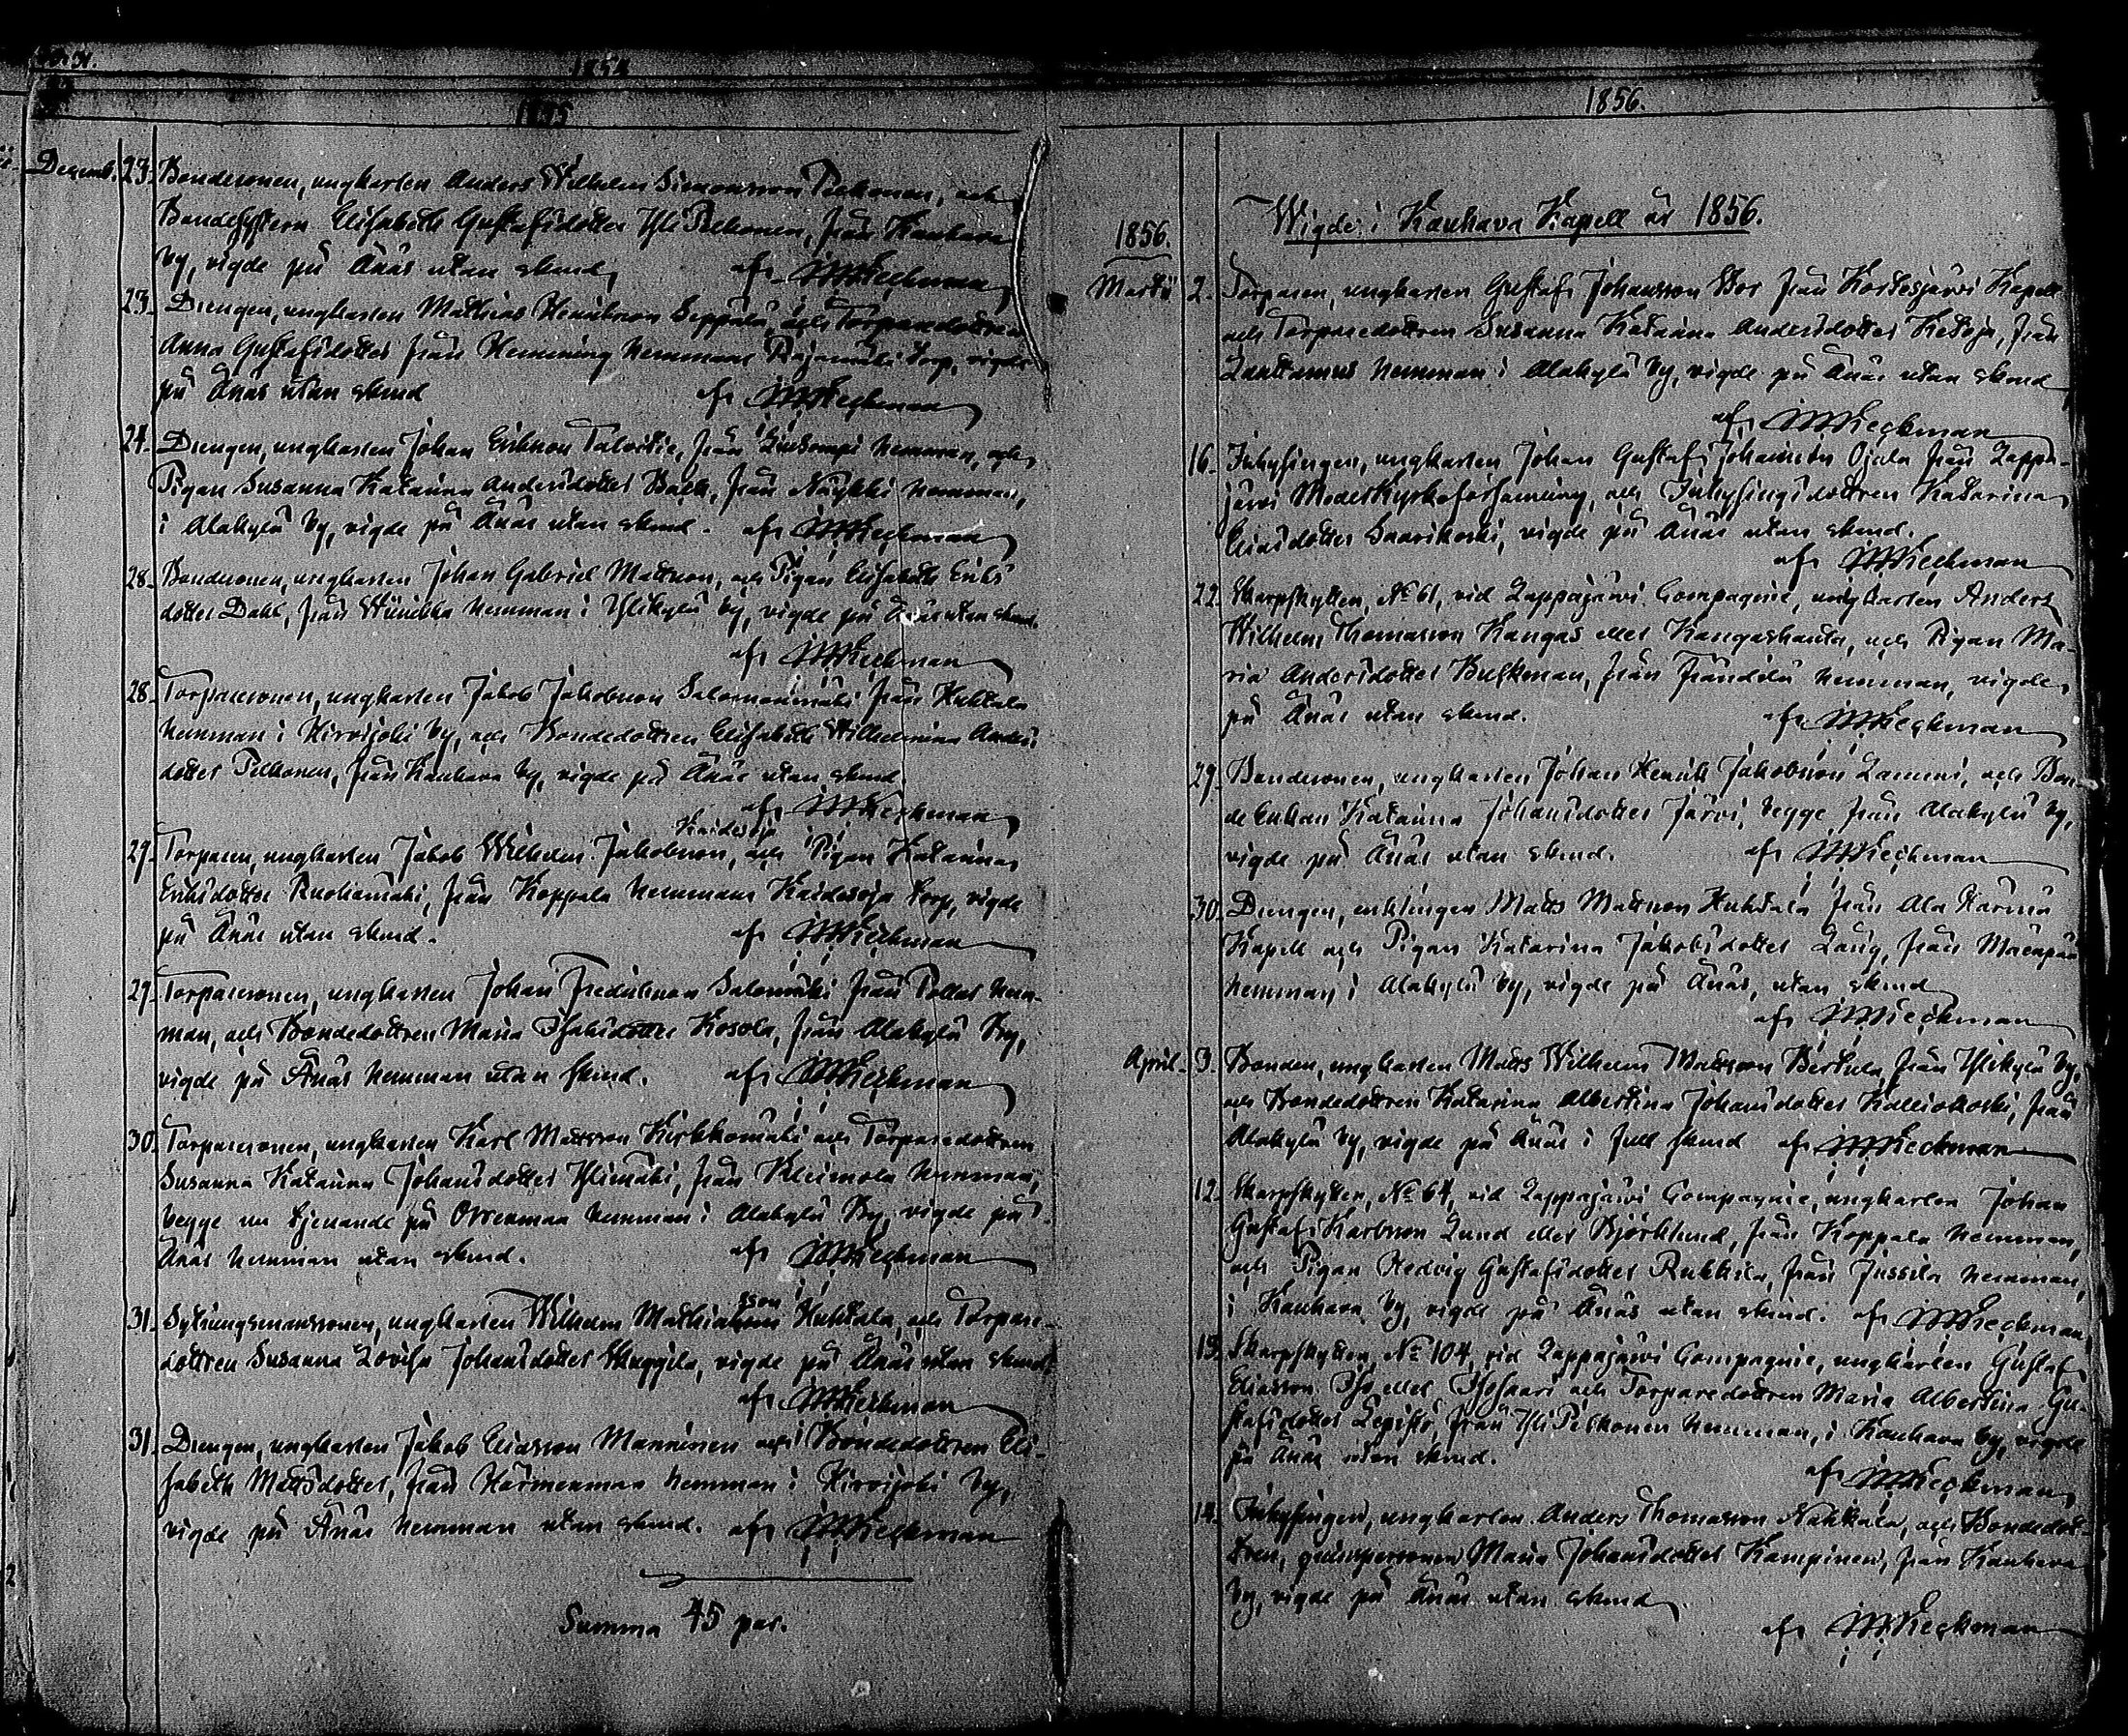 1855
Decemb. 23. Bondesonen, ungkarlen Anders Wilhelm Simonsson Pelkonen, och
Bondehustrun Elisabeth Gustafsdotter Yli Pelkonen, från Kauhava
by, vigde på Änäs utan skrud, af
23. Drengen, ungkarlen Mathias Henriksson Seppälä, och Torparedottren
Anna Gustafsdotter från Hemming hemmans Rajamäki torp, vigde
på Änäs utan skrud af
24. Drengen, ungkarlen Johan Eriksson Talvitie, från hemman, och
Pigan Susanna Katarina Andersdotter Bäck, från Näykki hemman,
i Alakylä by, vigde på Änäs utan skrud. af
28. Bondesonen, ungkarlen Johan Gabriel Mattsson, och Pigan Elisabeth Eriks
dotter Dahl, från hemman i Ylikylä by, vigde på Änäs utan skrud.
af
28. Torparesonen, ungkarlen Jakob Jakobsson Salomäki från Huhtala
hemman i Hirvijoki by, och Bondedottren Elisabeth Wilhelmina Anders
dotter Pelkonen, från Kauhava by, vigde på Änäs utan skrud.
af
Kaidesoja
29. Torparen, ungkarlen Jakob Wilhelm Jakobsson, och Pigan Katarina
Eriksdotter Ruohamäki, från Koppala hemmans Kaidesoja torp, vigde
på Änäs utan skrud. af
29. Torparesonen, ungkarlen Johan Fredriksson Salomäki från Pollar hem-
man, och Bondedottren Maria Isaksdotter Kosola, från Alakylä by,
vigde på Änäs hemman utan skrud. af
30. Torparesonen, ungkarlen Karl Mattsson Kirkkomäki och Torparedottren
Susanna Katarina Johansdotter Ylimäki, från Kleimola hemman,
begge nu tjenande på hemman i Alakylä By, vigde på
Änäs hemman utan skrud. af
31. Sytningsmanssonen, ungkarlen Wilhelm Mathiasson Huhtala, och Torpare-
dottren Susanna Lovisa Johansdotter Skuggila, vigde på Änäs utan skrud,
af
31. Drengen, ungkarlen Jakob Eliasson Manninen och Bondedottren Eli-
sabeth Mattsdotter, från Härmänmaa hemman i Hirvijoki by,
vigde på Änäs hemman utan skrud. af
Summa 45 par.
1856.
Wigde i Kauhava Kapell år 1856.
1856.
Martii 2. Torparen, ungkarlen Gustaf Johansson Bor från Kortesjärvi Kapell
och Torparedottren Susanna Katarina Andersdotter Ketoja, från
hemman i Alakylä by, vigde på Änäs utan skrud
af
16. Inhysingen, ungkarlen Johan Gustaf Johansson Ojala från Lappa-
järvi Moderkyrkoförsamling, och Inhysingsdottren Katarina
Eliasdotter Saarikoski, vigde på Änäs utan skrud.
af
22. Skarpskytten, No 61, vid Lappajärvi Compagnie, ungkarlen Anders
Wilhelm Thomasson Kangas eller Kangashauta, och Pigan Ma-
ria Andersdotter Buskman, från Frändilä hemman, vigde
på Änäs utan skrud. af
29. Bondesonen, ungkarlen Johan Henrik Jakobsson Lammi, och Bon-
de Enkan Katarina Johansdotter Järvi, begge från Alakylä by,
vigde på Änäs utan skrud. af
30. Drengen, enklingen Matts Mattsson Huhtala från Ala Härmä
Kapell och Pigan Katarina Jakobsdotter Lång, från Mäenpää
hemman i Alakylä by, vigde på Änäs, utan skrud
af
April. 3. Bonden, ungkarlen Matts Wilhelm Mattsson Bertula, från Ylikylä by,
och Bondedottren Katarina Albertina Johansdotter Kalliokoski, från
Alakylä by, vigde på Änäs i full skrud af
12. Skarpskytten, No 64, vid Lappajärvi Compagnie, ungkarlen Johan
Gustaf Karlsson Lund eller Björklund, från Koppala hemman,
och Pigan Hedvig Gustafsdotter Rukkila, från Jussila hemman,
i Kauhava by, vigde på Änäs utan skrud. af
13. Skarpskytten, No 104, vid Lappajärvi Compagnie, ungkarlen Gustaf
Eliasson Iso eller Isosaari och Torparedottren Maria Albertina Gu-
stafsdotter Lepistö, från Yli Pelkonen hemman, i Kauhava by, vigde
på Änäs utan skrud.
af
14. Inhysingen, ungkarlen Anders Thomasson Nahkala, och Bondedot-
tren, qvinspersonen Maria Johansdotter Kampinen, från Kauhava
by, vigde på Änäs utan skrud
af